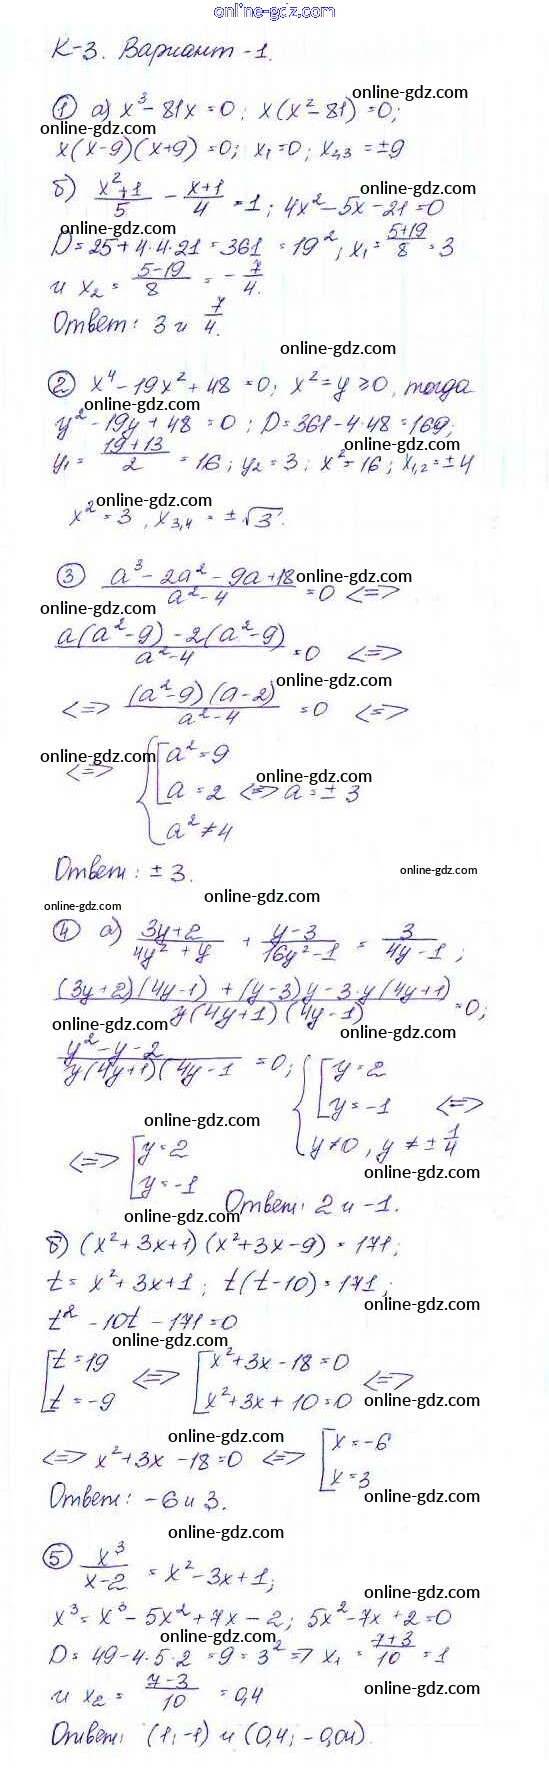 online-gdz.com
К-3. Вариант -1.
online-gdz.com
① а) x³ - 81x = 0; x(x² - 81) = 0;
online-gdz.com
x(x-9)(x+9) = 0; x₁ = 0; x₂,₃ = ±9
online-gdz.com
б) (x²+1)/5 - (x+1)/4 = 1; 4x² - 5x - 21 = 0
online-gdz.com
D = 25 + 4·4·21 = 361 = 19²; x₁ = (5+19)/8 = 3
и x₂ = (5-19)/8 = -7/4.
Ответ: 3 и 7/4.
online-gdz.com
② x⁴ - 19x² + 48 = 0; x² = y ≥ 0, тогда
online-gdz.com
y² - 19y + 48 = 0; D = 361 - 4·48 = 169;
online-gdz.com
y₁ = (19+13)/2 = 16; y₂ = 3; x² = 16; x₁,₂ = ±4
online-gdz.com
x² = 3, x₃,₄ = ±√3.
③ (a³ - 2a² - 9a + 18)/(a² - 4) = 0 <=>
online-gdz.com
online-gdz.com
(a(a² - 9) - 2(a² - 9))/(a² - 4) = 0 <=>
online-gdz.com
<=> ((a² - 9)(a - 2))/(a² - 4) = 0 <=>
online-gdz.com
online-gdz.com
<=> { [ a² = 9
a = 2 <=> a = ±3
online-gdz.com
a² ≠ 4
Ответ: ±3.
online-gdz.com
online-gdz.com
online-gdz.com
④ а) (3y+2)/(4y²+y) + (y-3)/(16y²-1) = 3/(4y-1);
((3y+2)(4y-1) + (y-3)y - 3·y(4y+1))/(y(4y+1)(4y-1)) = 0;
online-gdz.com
online-gdz.com
(y² - y - 2)/(y(4y+1)(4y-1) = 0; { [ y = 2
y = -1 <=>
y ≠ 0, y ≠ ±1/4
online-gdz.com
online-gdz.com
<=> [ y = 2
y = -1
Ответ: 2 и -1.
online-gdz.com
online-gdz.com
б) (x² + 3x + 1)(x² + 3x - 9) = 171;
t = x² + 3x + 1; t(t - 10) = 171;
online-gdz.com
t² - 10t - 171 = 0
online-gdz.com
[ t = 19 <=> [ x² + 3x - 18 = 0 <=>
t = -9 x² + 3x + 10 = 0
online-gdz.com
<=> x² + 3x - 18 = 0 <=> [ x = -6
x = 3
Ответ: -6 и 3.
online-gdz.com
online-gdz.com
⑤ x³/(x-2) = x² - 3x + 1;
online-gdz.com
x³ = x³ - 5x² + 7x - 2; 5x² - 7x + 2 = 0
online-gdz.com
D = 49 - 4·5·2 = 9 = 3² => x₁ = (7+3)/10 = 1
и x₂ = (7-3)/10 = 0,4
online-gdz.com
Ответ: (1; -1) и (0,4; -0,04).